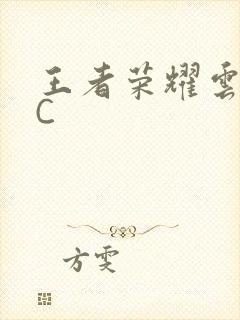 王者荣耀雲
C
方雯